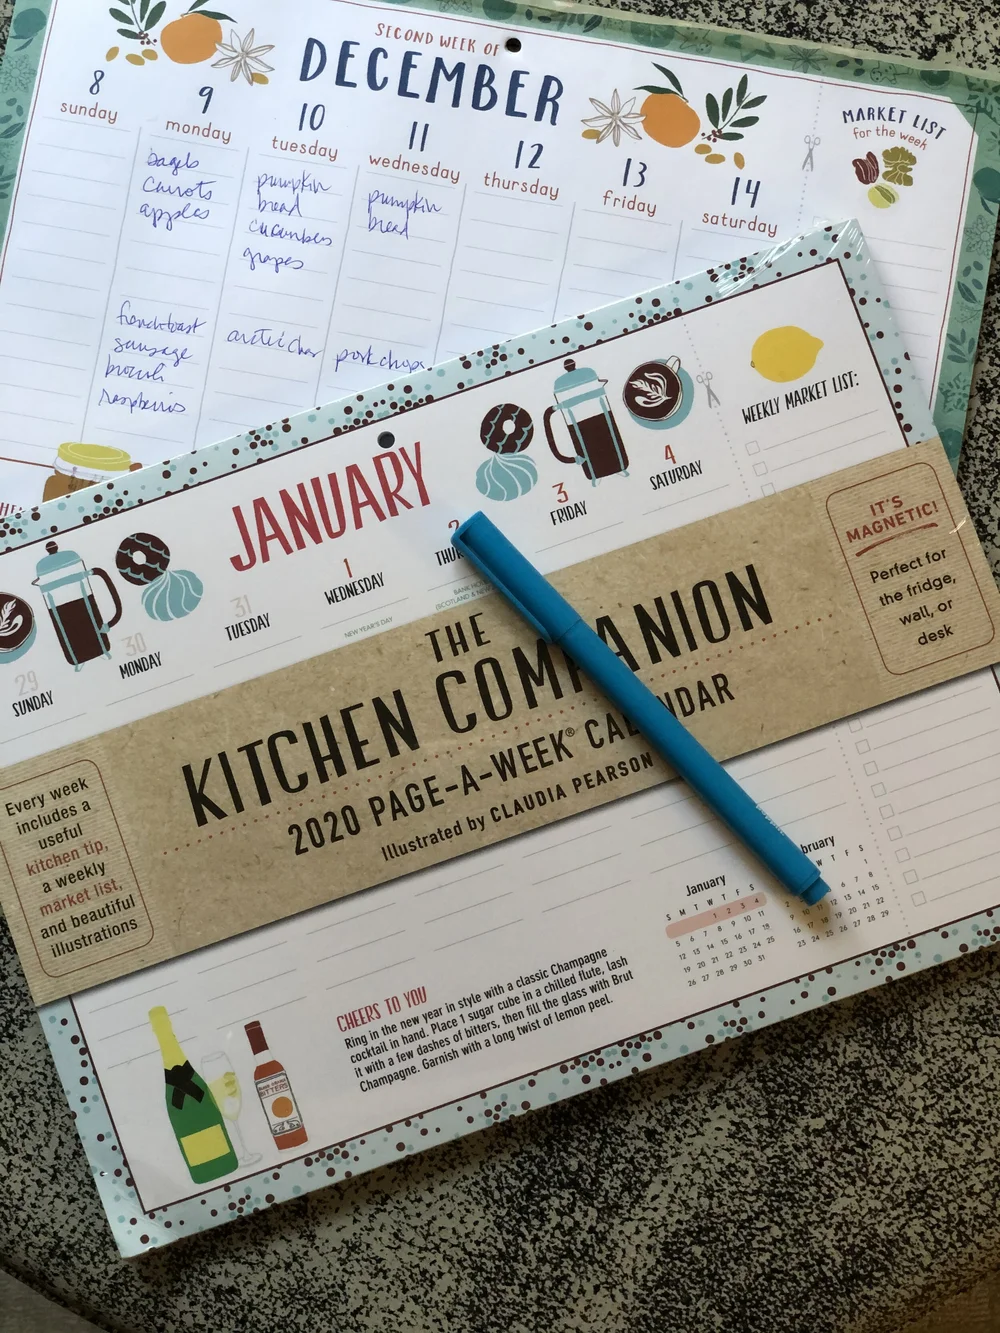 SECOND WEEK OF
DECEMBER
8
sunday
9
monday
10
tuesday
11
wednesday
12
thursday
13
friday
14
saturday
MARKET LIST
for the week
bagels
carrots
apples
pumpkin
bread
cucumbers
grapes
pumpkin
bread
french toast
sausage
raspberries
arctic char
pork chops
JANUARY
29
SUNDAY
30
MONDAY
31
TUESDAY
1
WEDNESDAY
NEW YEAR'S DAY
2
3
FRIDAY
4
SATURDAY
WEEKLY MARKET LIST:
THE
KITCHEN COMPANION
2020 PAGE-A-WEEK® CALENDAR
Illustrated by CLAUDIA PEARSON
IT'S
MAGNETIC!
Perfect for
the fridge,
wall, or
desk
Every week
includes a
useful
kitchen tip,
a weekly
market list,
and beautiful
illustrations
CHEERS TO YOU
Ring in the new year in style with a classic Champagne
cocktail in hand. Place 1 sugar cube in a chilled flute, lash
it with a few dashes of bitters, then fill the glass with Brut
Champagne. Garnish with a long twist of lemon peel.
BITTERS
January
S M T W T F S
1 2 3 4
5 6 7 8 9 10 11
12 13 14 15 16 17 18
19 20 21 22 23 24 25
26 27 28 29 30 31
bruary
W T F S
1